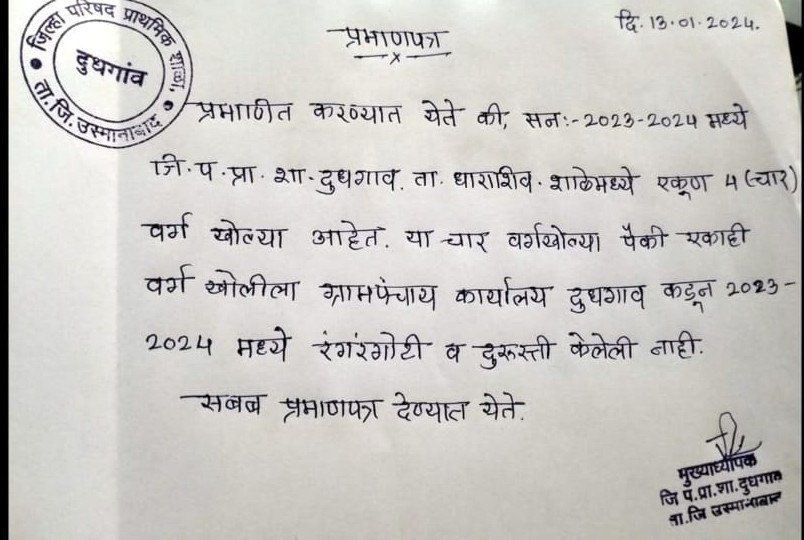 जिल्हा परिषद प्राथमिक शाळा,
दुधगांव
ता. जि. उस्मानाबाद
दि. 13.01.2024.
प्रमाणपत्र
प्रमाणीत करण्यात येते की, सन:-2023-2024 मध्ये
जि.प.प्रा.शा.दुधगाव. ता. धाराशिव. शाळेमध्ये एकूण 4 (चार)
वर्ग खोल्या आहेत. या चार वर्गखोल्या पैकी एकाही
वर्ग खोलीला ग्रामपंचाय कार्यालय दुधगाव कडून 2023-
2024 मध्ये रंगरंगोटी व दुरुस्ती केलेली नाही.
सबब प्रमाणपत्र देण्यात येते.
मुख्याध्यापक
जि प.प्रा.शा.दुधगाव
ता.जि उस्मानाबाद